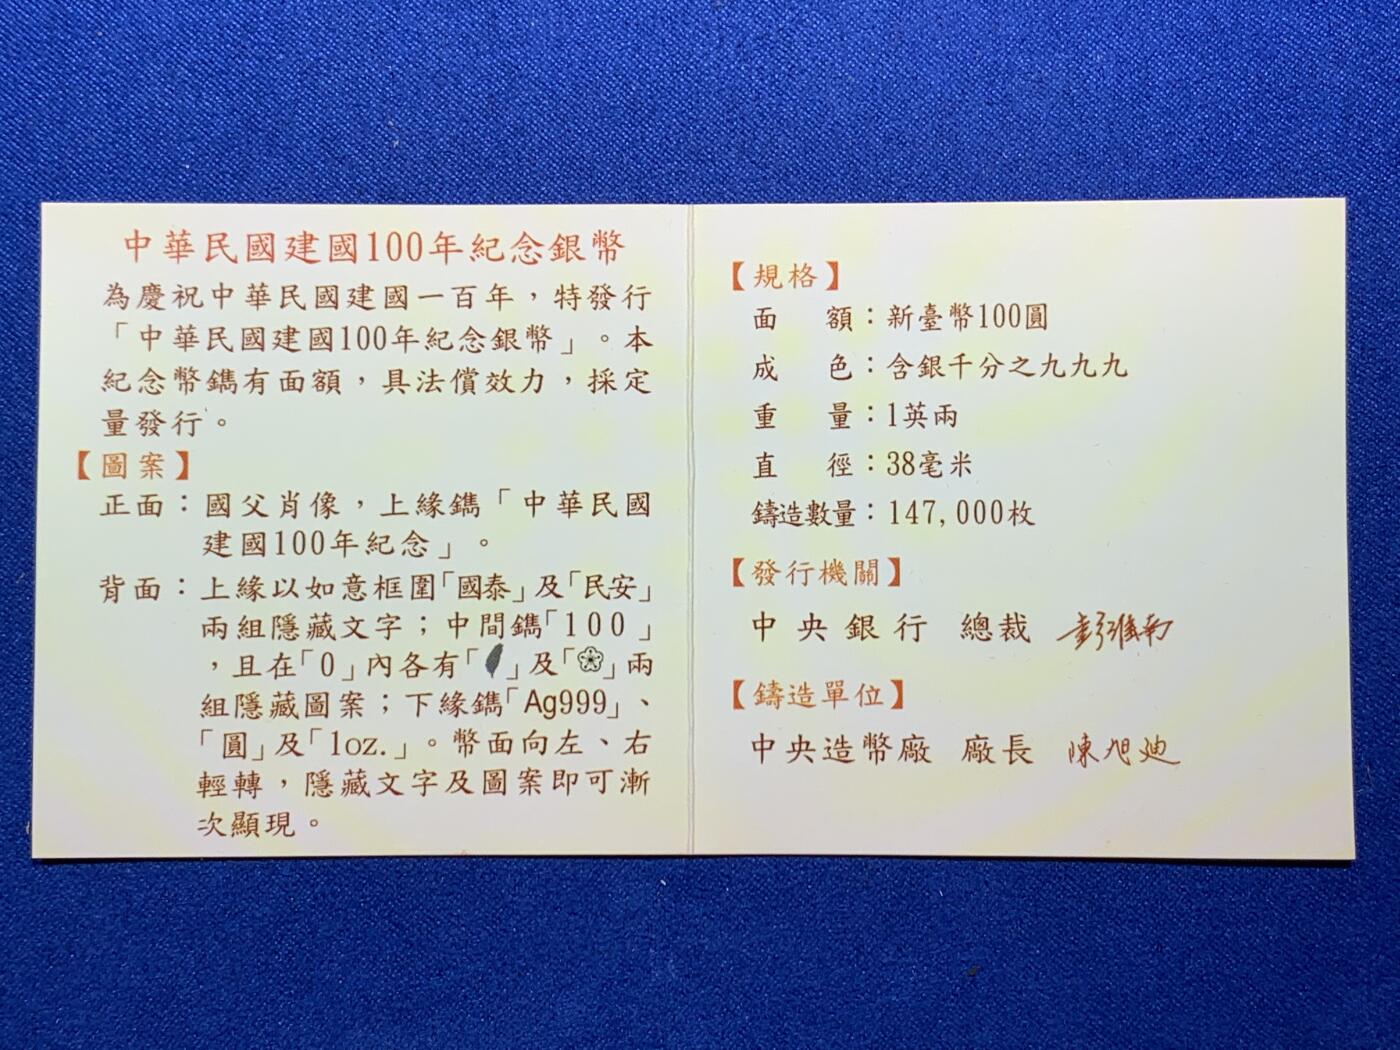 中華民國建國100年紀念銀幣
為慶祝中華民國建國一百年，特發行
「中華民國建國100年紀念銀幣」。本
紀念幣鐫有面額，具法償效力，採定
量發行。
【圖案】
正面：國父肖像，上緣鐫「中華民國
建國100年紀念」。
背面：上緣以如意框圍「國泰」及「民安」
兩組隱藏文字；中間鐫「100」
，且在「0」內各有「」及「」兩
組隱藏圖案；下緣鐫「Ag999」、
「圓」及「1oz.」。幣面向左、右
輕轉，隱藏文字及圖案即可漸
次顯現。
【規格】
面額：新臺幣100圓
成色：含銀千分之九九九
重量：1英兩
直徑：38毫米
鑄造數量：147,000枚
【發行機關】
中央銀行 總裁 彭淮南
【鑄造單位】
中央造幣廠 廠長 陳旭迪